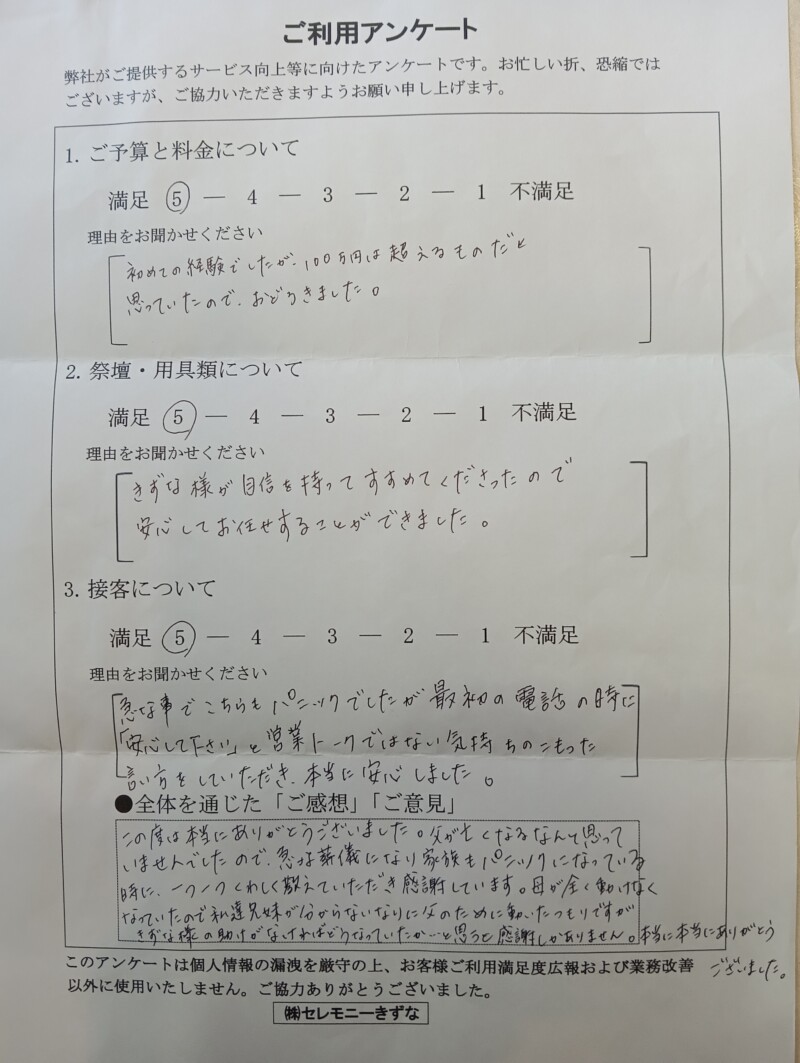 ご利用アンケート
弊社がご提供するサービス向上等に向けたアンケートです。お忙しい折、恐縮では
ございますが、ご協力いただきますようお願い申し上げます。
1. ご予算と料金について
満足 5 ― 4 ― 3 ― 2 ― 1 不満足
理由をお聞かせください
初めての経験でしたが、100万円は超えるものだと
思っていたので、おどろきました。
2. 祭壇・用具類について
満足 5 ― 4 ― 3 ― 2 ― 1 不満足
理由をお聞かせください
きずな様が自信を持ってすすめてくださったので
安心してお任せすることができました。
3. 接客について
満足 5 ― 4 ― 3 ― 2 ― 1 不満足
理由をお聞かせください
急な事でこちらもパニックでしたが最初の電話の時に
「安心して下さい」と営業トークではない気持ちのこもった
言い方をしていただき、本当に安心しました。
●全体を通じた「ご感想」「ご意見」
この度は本当にありがとうございました。父が亡くなるなんて思って
いませんでしたので、急な葬儀になり家族もパニックになっている
時に、一つ一つくわしく教えていただき感謝しています。母が全く動けなく
なっていたので私達兄妹が分からないなりに父のために動いたつもりですが
きずな様の助けがなければどうなっていたか…と思うと感謝しかありません。本当に本当にありがとう
ございました。
このアンケートは個人情報の漏洩を厳守の上、お客様ご利用満足度広報および業務改善
以外に使用いたしません。ご協力ありがとうございました。
㈱セレモニーきずな